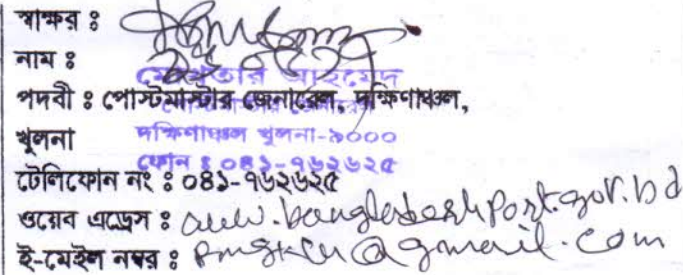 স্বাক্ষর ঃ
নাম ঃ
আহমেদ
পদবী ঃ পোস্টমাস্টার জেনারেল, দক্ষিণাঞ্চল,
খুলনা
দক্ষিণাঞ্চল খুলনা-৯০০০
ফোন ঃ ০৪১-৭৬২৬২৫
টেলিফোন নং ঃ ০৪১-৭৬২৬২৫
ওয়েব এড্রেস ঃ www.bangladeshpost.gov.bd
ই-মেইল নম্বর ঃ @gmail.com